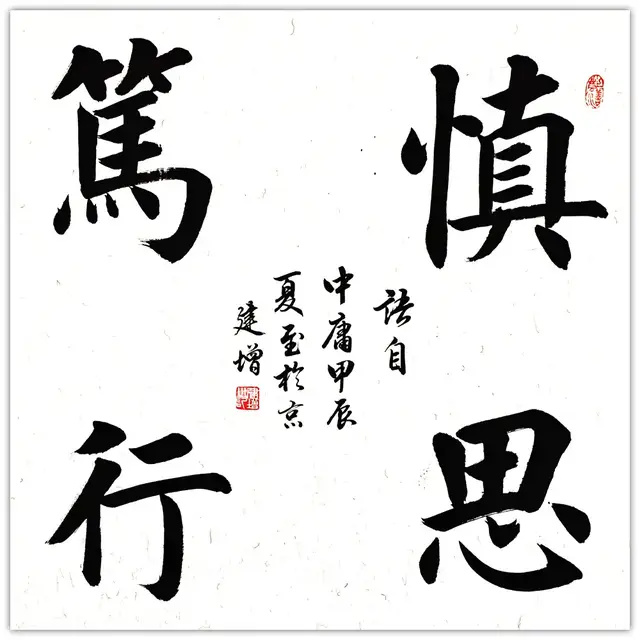 慎思
篤行
語自
中庸甲辰
夏至於京
建增